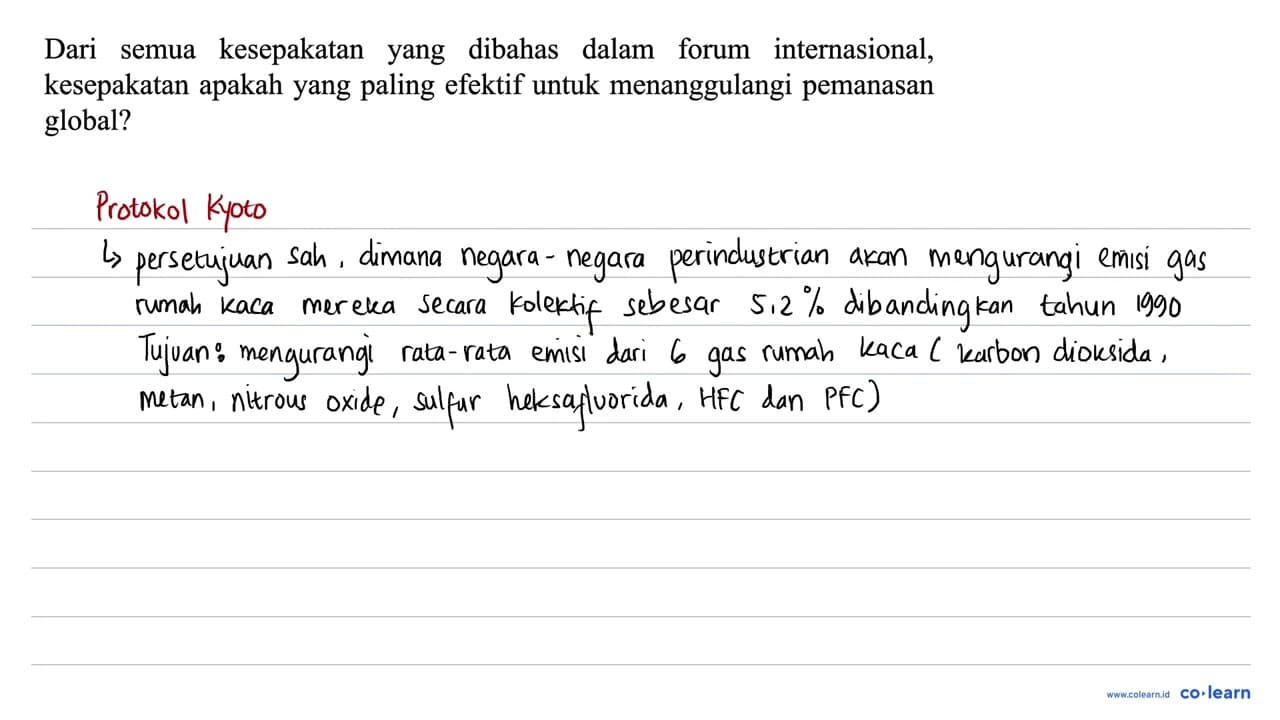 Dari semua kesepakatan yang dibahas dalam forum internasional,
kesepakatan apakah yang paling efektif untuk menanggulangi pemanasan
global?
Protokol Kyoto
↳ persetujuan sah, dimana negara-negara perindustrian akan mengurangi emisi gas
rumah kaca mereka secara kolektif sebesar 5,2% dibandingkan tahun 1990
Tujuan: mengurangi rata-rata emisi dari 6 gas rumah kaca (karbon dioksida,
metan, nitrous oxide, sulfur heksafluorida, HFC dan PFC)
www.colearn.id co·learn